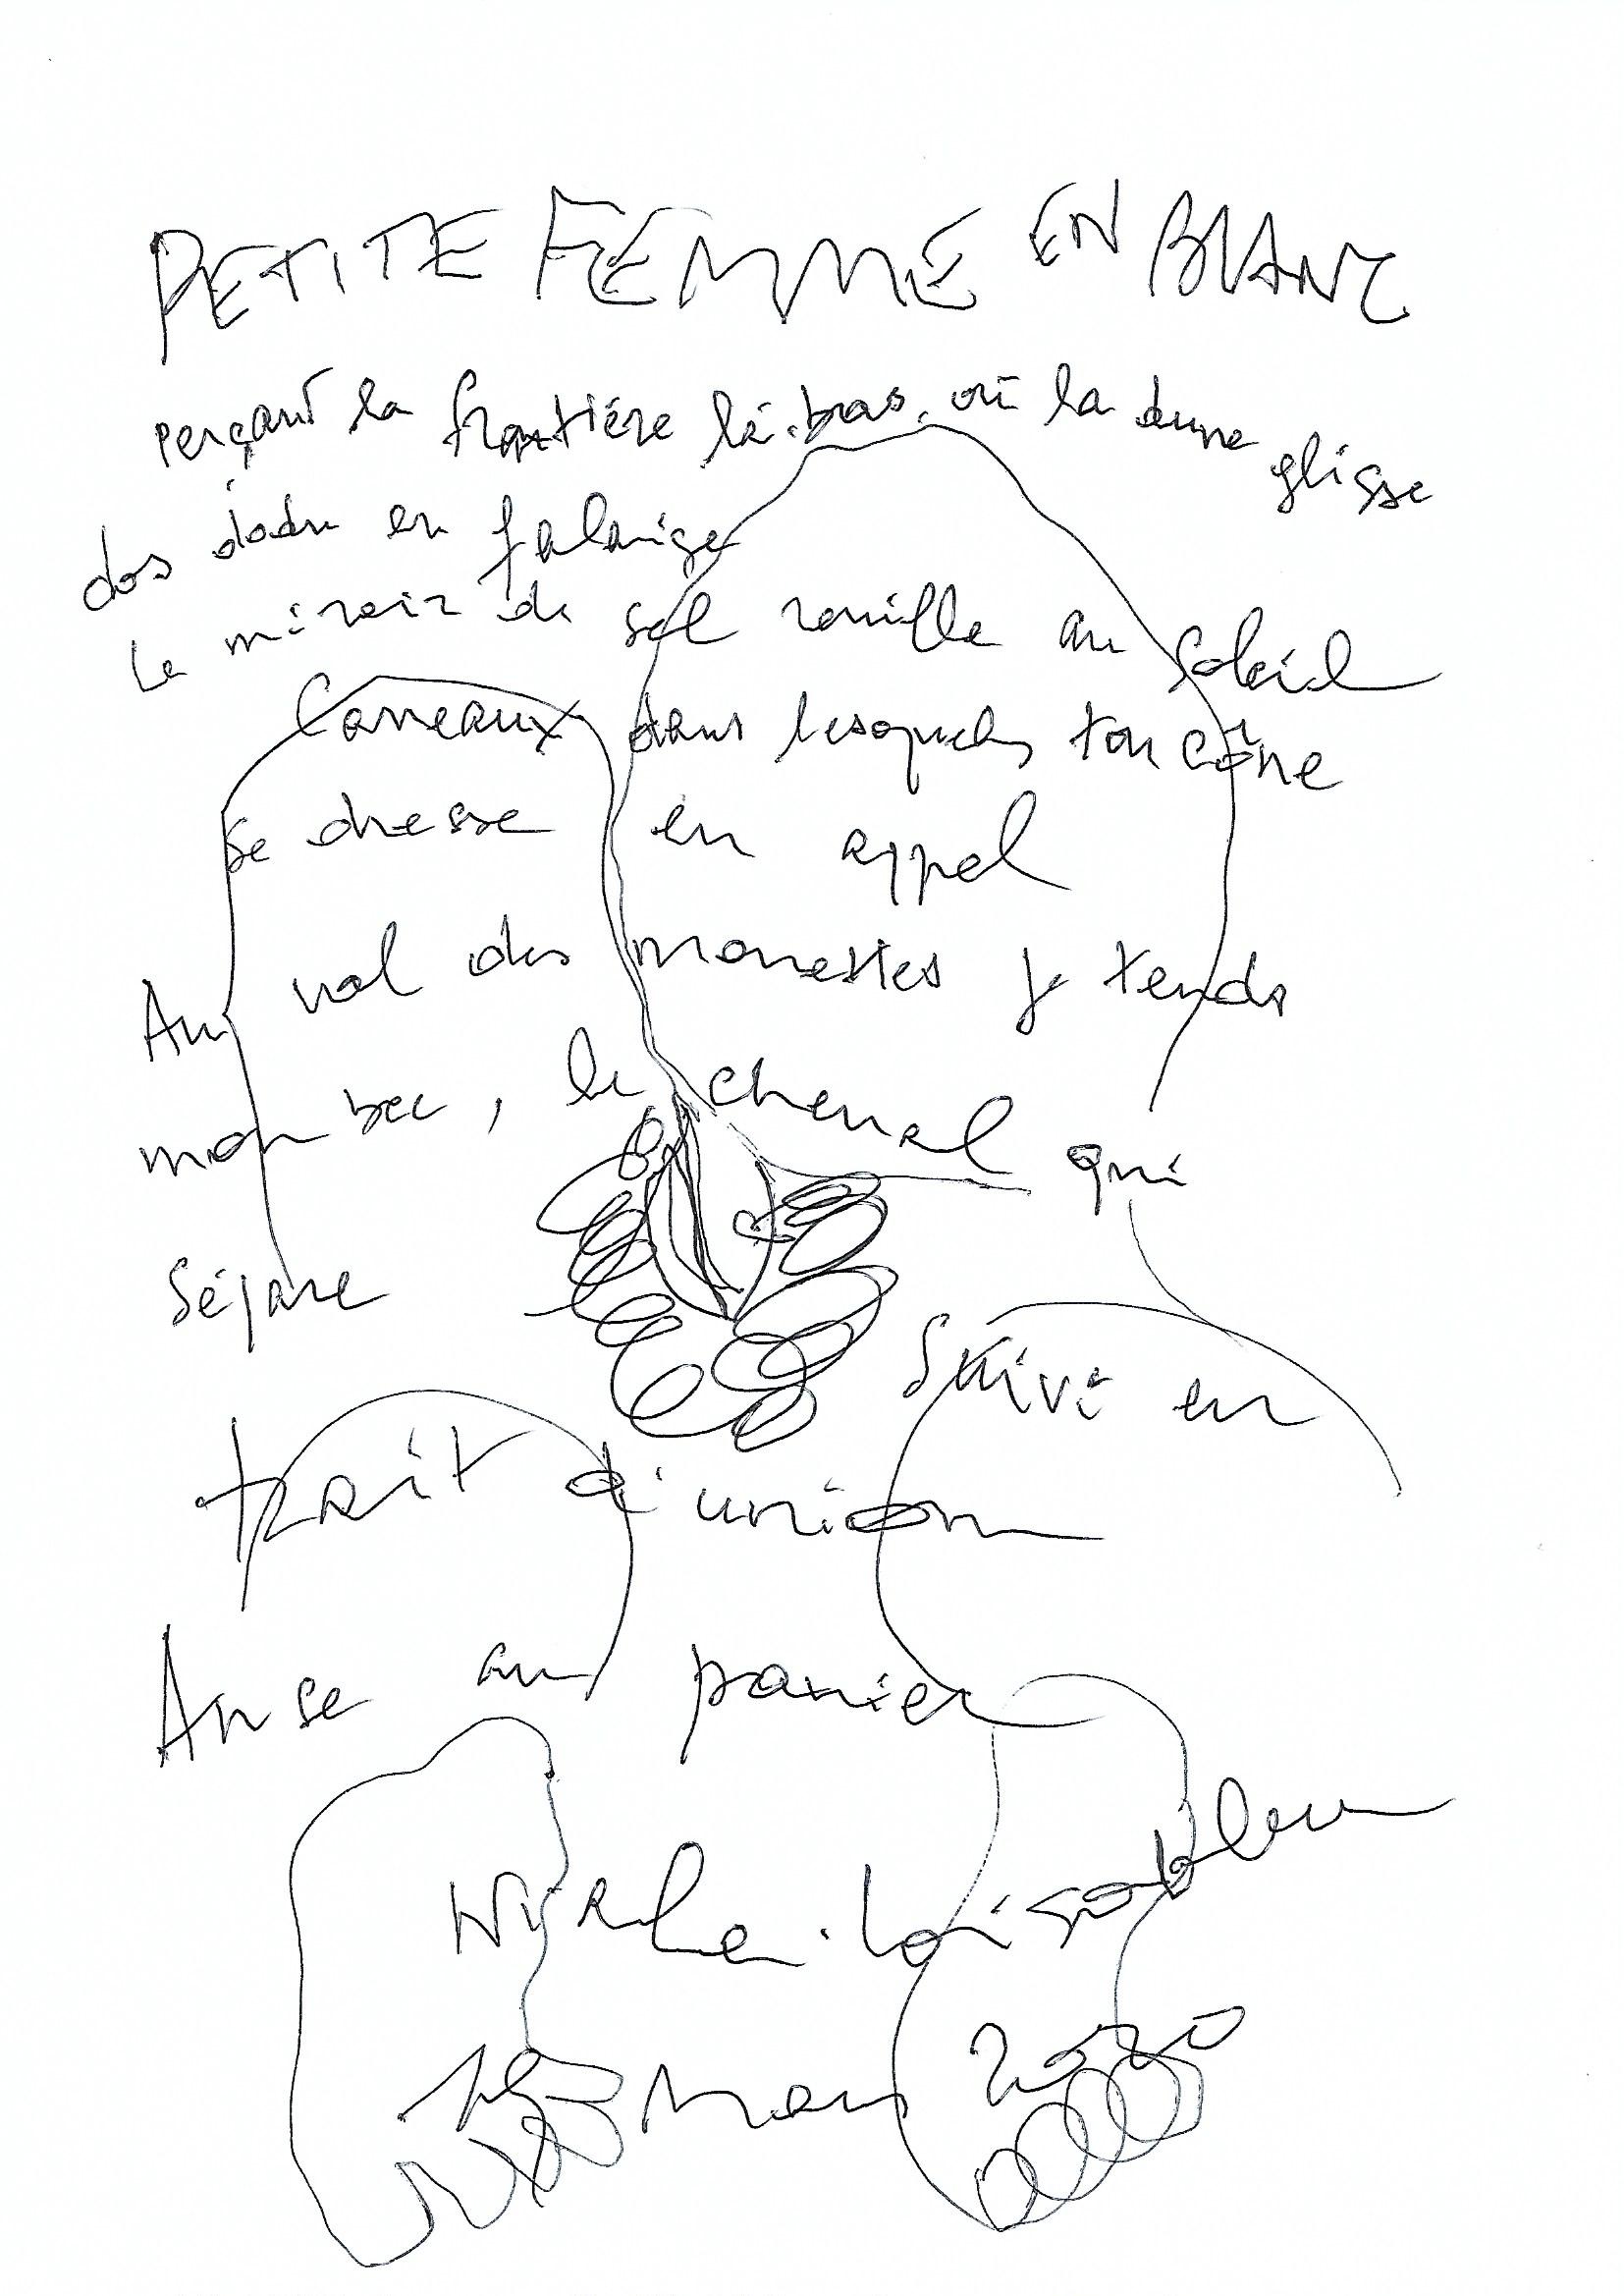 PETITE FEMME EN BLANC
perçant la frontière là-bas, où la dune glisse
dos dodu en falaise
Le miroir de sel rouille au soleil
Carreaux dans lesquels ton cône
se dresse en appel
Au vol des mouettes je tends
mon bec, le chenal qui
sépare
Suivi en
trait d'union
Anse au panier
Niala-Loisobleu
Mars 2020